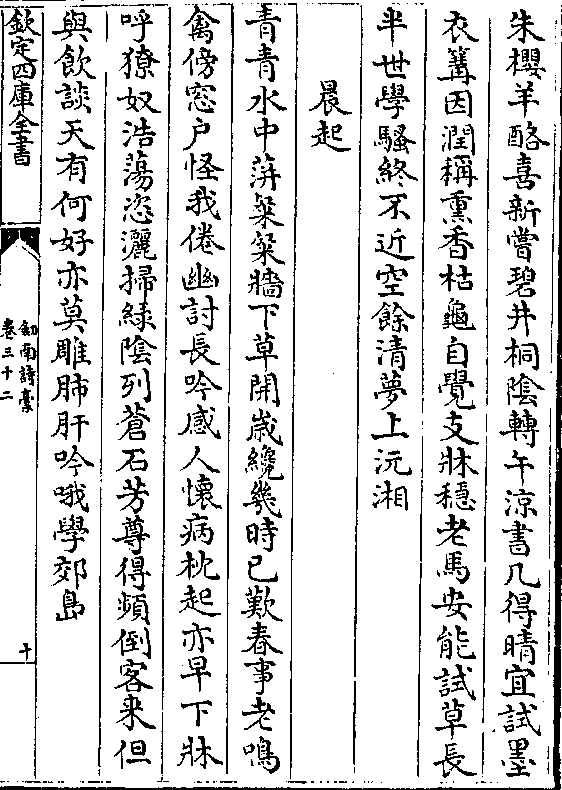 朱櫻羊酪喜新嘗碧井桐陰轉午涼書几得晴宜試墨
衣篝因潤稱熏香枯龜自覺支牀穩老馬安能試草長
半世學騷終不近空餘清夢上沅湘
晨起
青青水中蓱粲粲牆下草開嵗纔幾時已歎春事老鳴
禽傍窓户怪我倦幽討長吟感人懷病枕起亦早下牀
呼獠奴浩蕩恣灑掃緑陰列蒼石芳尊得頻倒客来但
與飲談天有何好亦莫雕肺肝吟哦學郊島
欽定四庫全書
劒南詩藁
卷三十二
十